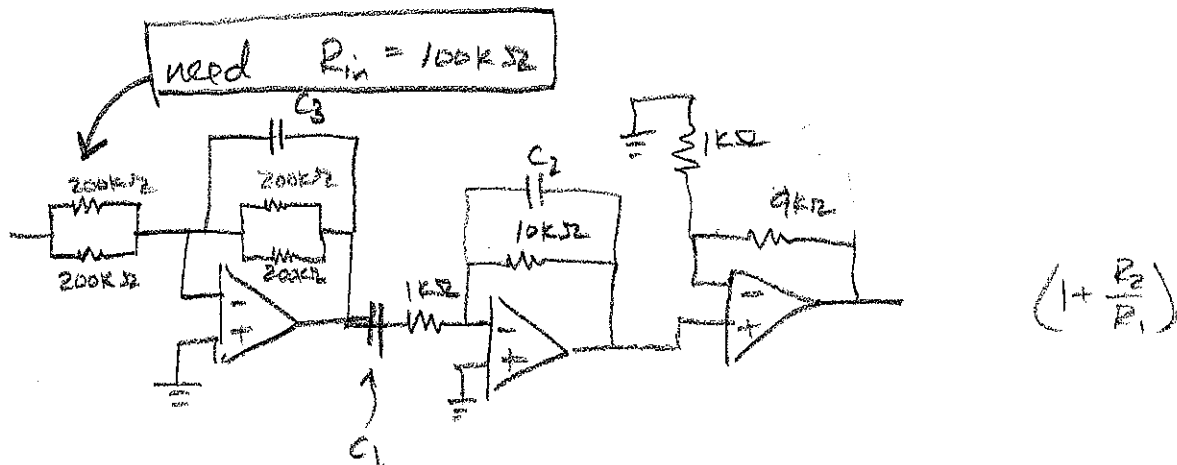 need R_in = 100kΩ
C_3
200kΩ
200kΩ
200kΩ
200kΩ
1kΩ
C_1
C_2
10kΩ
1kΩ
9kΩ
(1 + R_2/R_1)